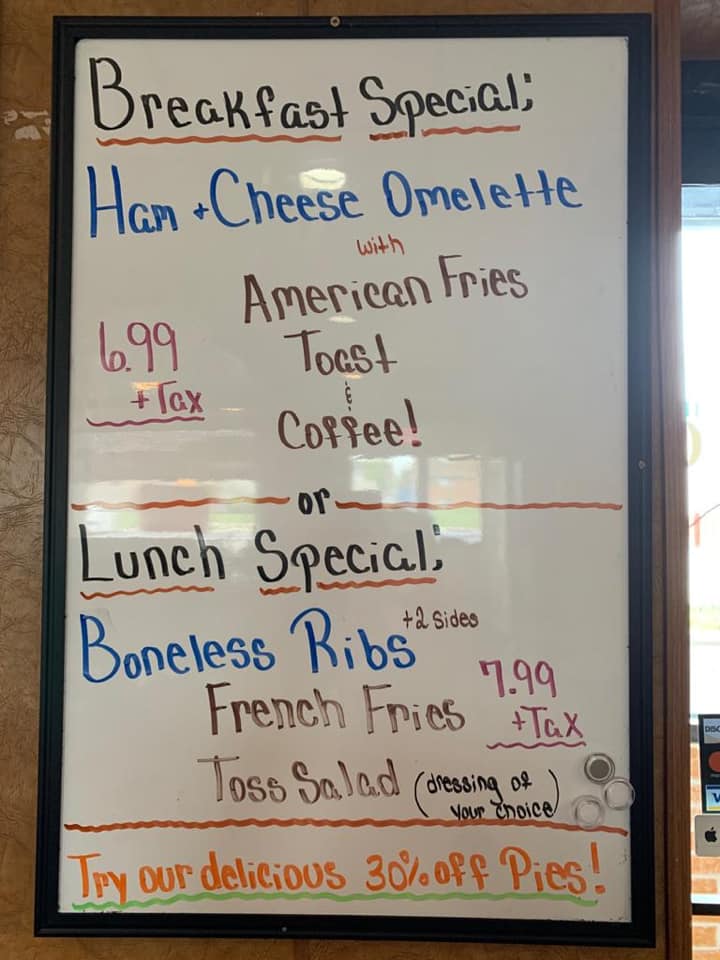 Breakfast Special:
Ham + Cheese Omelette
with
American Fries
6.99
+ Tax
Toast
&
Coffee!
or
Lunch Special:
Boneless Ribs +2 Sides
French Fries
7.99
+Tax
Toss Salad (dressing of
your choice)
Try our delicious 30% off Pies!
DISC
V